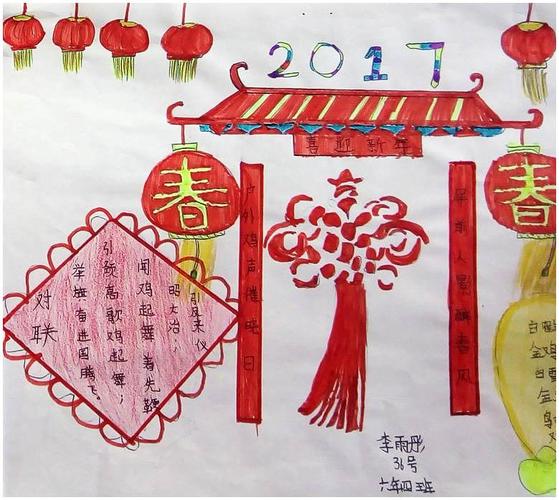 2017
喜迎新年
春
春
户外鸡声催晓日
屏前人影醉春风
对联
引凤来仪
昭大治；
闻鸡起舞著先鞭
引颈高歌鸡起舞；
举旗奋进国腾飞。
金鸡
李雨彤
36号
六年四班